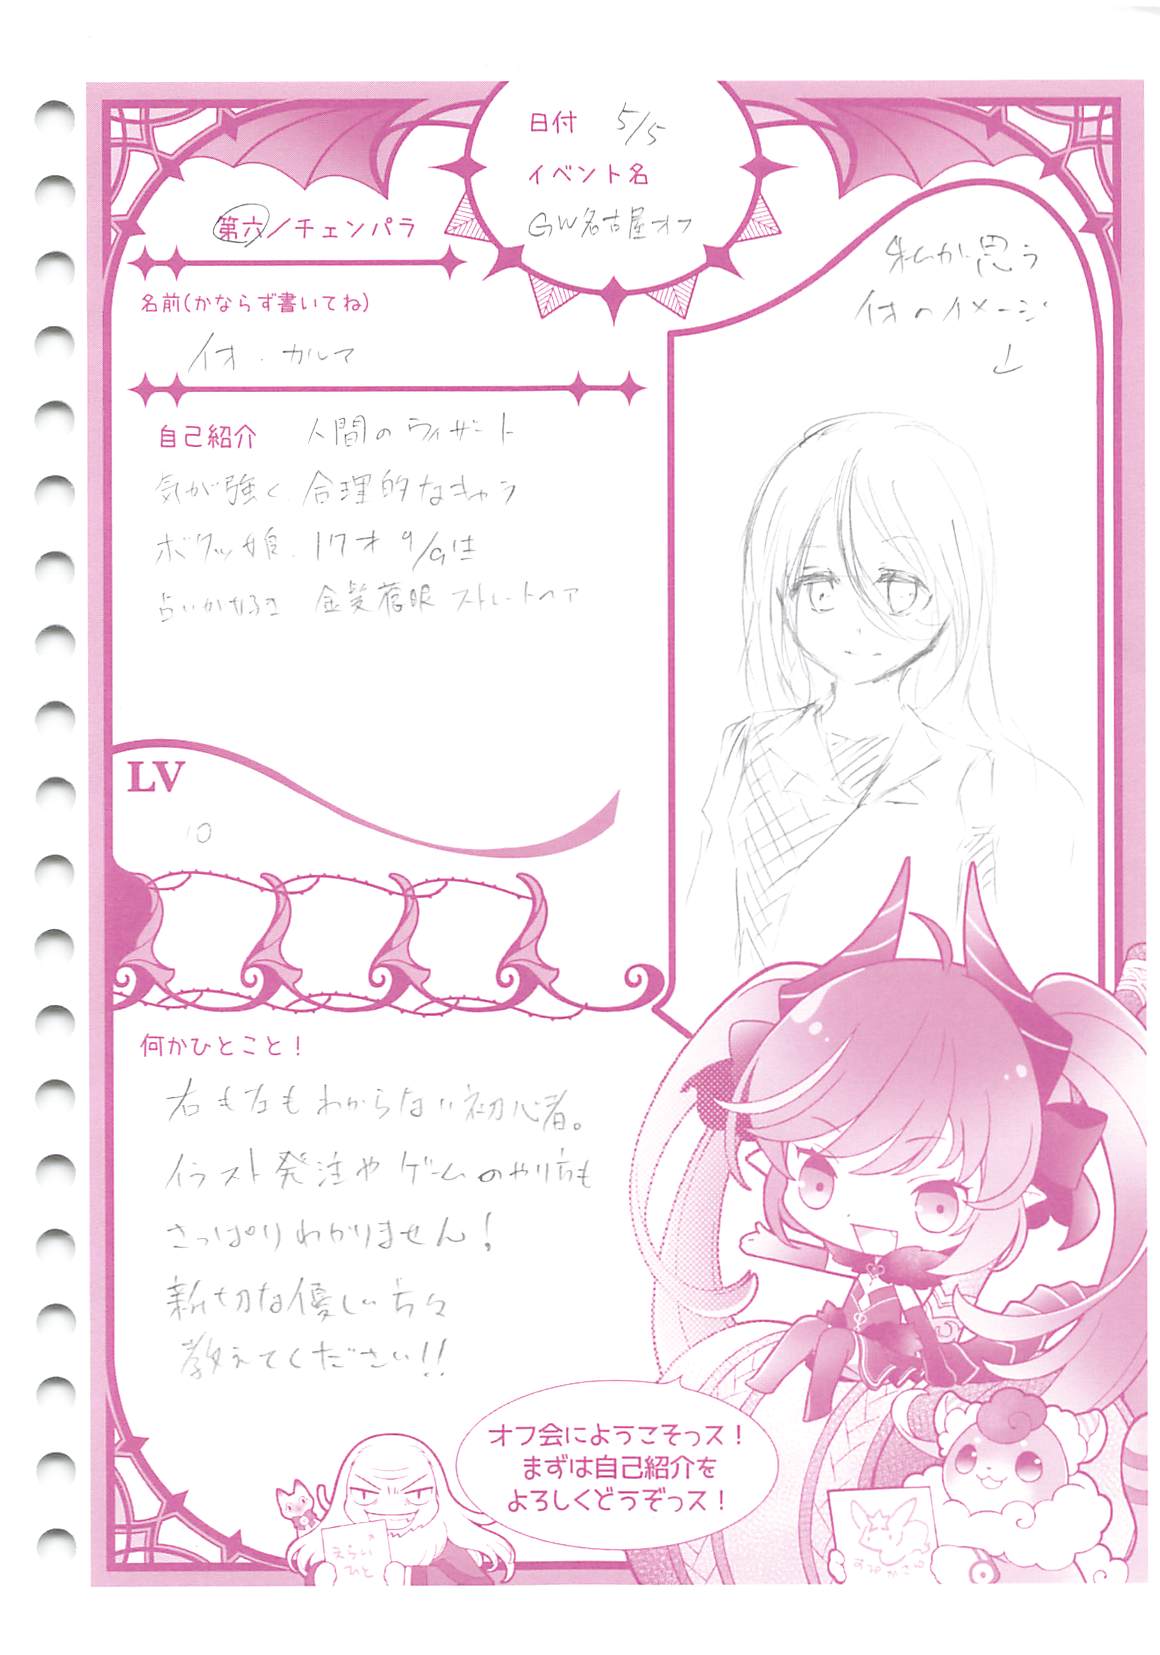 日付 5/5
イベント名
GW名古屋オフ
第六/チェンパラ
名前(かならず書いてね)
イオ・カルマ
自己紹介 人間のウィザード
気が強く、合理的なキャラ
ボクッ娘、17才 9/9生
金髪蒼眼 ストレートヘア
LV
10
私が思う
イオのイメージ
↓
何かひとこと!
右も左もわからない初心者。
イラスト発注やゲームのやり方も
さっぱりわかりません!
親切な優しい方々
教えてください!!
オフ会にようこそっス!
まずは自己紹介を
よろしくどうぞっス!
えらい
ひと